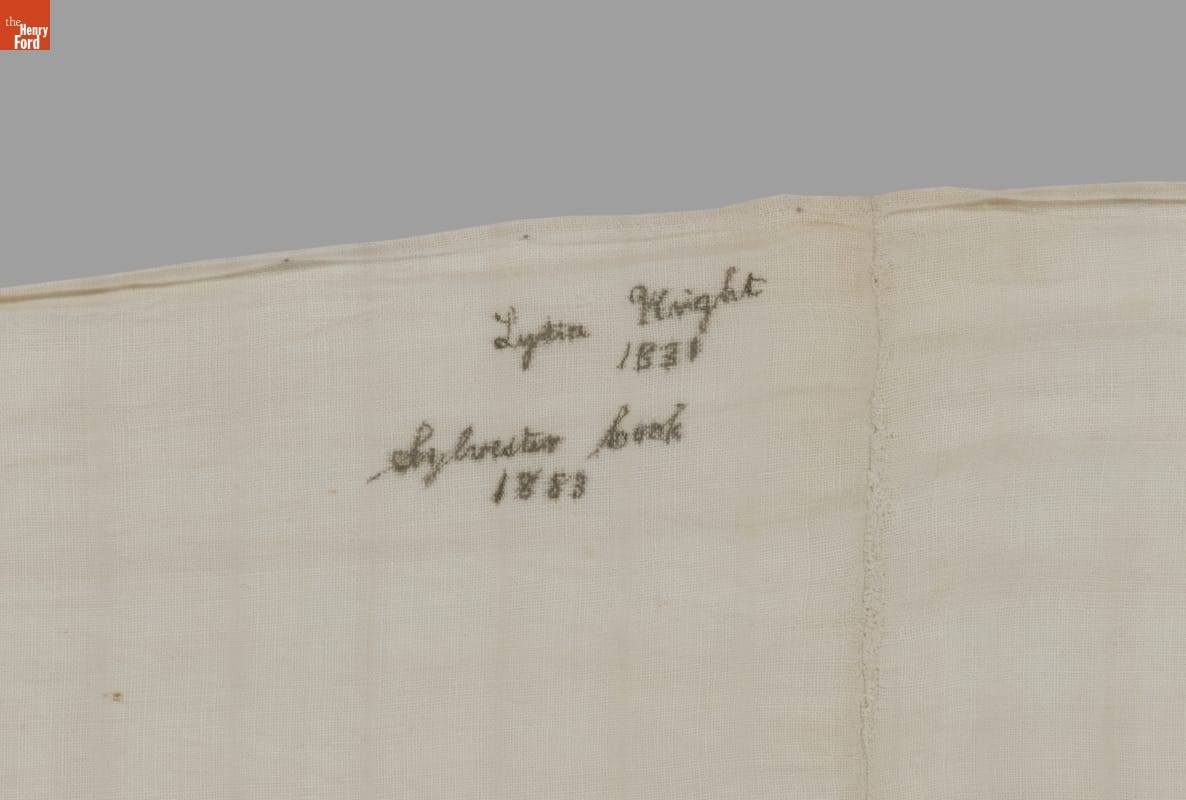 the
Henry
Ford
Lydia Knight
1831
Sylvester Cook
1883